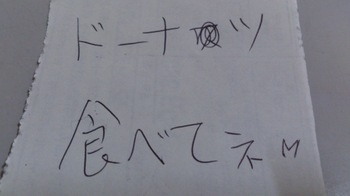 ドーナツ
食べてネM